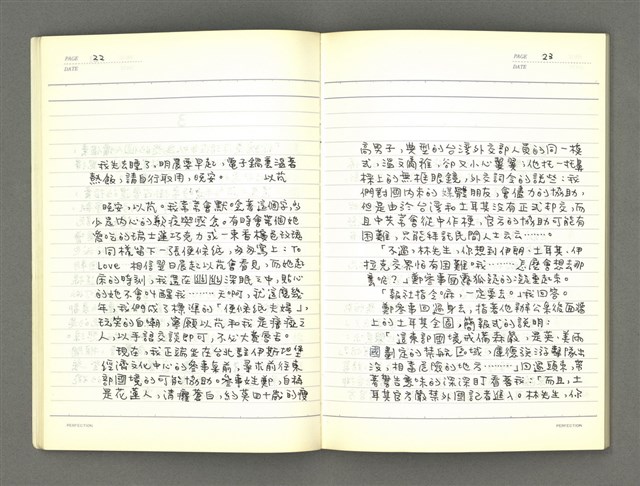 PAGE 22
DATE
我先去睡了,明晨要早起,電子鍋裏溫著
熱飯,請自行取用,晚安。 以苡
晚安,以苡。我常常會默念著這個字,多
少是內心的歉疚與感念。有時會買個她
愛吃的瑞士蓮巧克力或一束香檳色玫瑰
,同樣留下一張便條紙,匆匆寫上:To
Love 相信翌日晨起以苡會看見,而她起
床的時刻,我還在幽幽深眠之中,貼心
的她不會叫醒我……天啊,就這麼幾
年,我們成了標準的「便條紙夫婦」,
玩笑的自嘲,寧願以苡和我是瘖瘂之
人,以手語交談即可,不必大費唇舌。
現在,我正端坐在台北駐伊斯坦堡
經濟文化中心的參事桌前,尋求前往東
部國境的可能協助。參事姓鄭,自稱
是花蓮人,清癯蒼白,約莫四十歲的瘦
PERFECTION
PAGE 23
DATE
高男子,典型的台灣外交部人員的同一模
式,溫文爾雅,卻又小心翼翼,他托一托鼻
樑上的無框眼鏡,外交詞令的說些:我
們對國內來的媒體朋友,會儘力的協助,
但是由於台灣和土耳其沒有正式邦交,而
且中共常會從中作梗,官方的協助可能有
困難,只能轉託民間人士云云……。
「不過,林先生,你想到伊朗、土耳其、伊
拉克交界怕有困難。我……怎麼會想去那
裏呢?」鄭參事面露狐疑的淺笑起來。
「報社指令嘛,一定要去。」我回答。
鄭參事回過身去,指著他辦公桌後面牆
上的土耳其全圖,簡報式的說明:
「這東部國境戒備森嚴,是英、美兩
國劃定的禁航區域,庫德族游擊隊出
沒,相當危險的地方………」回過頭來,帶
著警告意味的深深盯著我:「而且,土
耳其官方嚴禁外國記者進入。林先生,你
PERFECTION